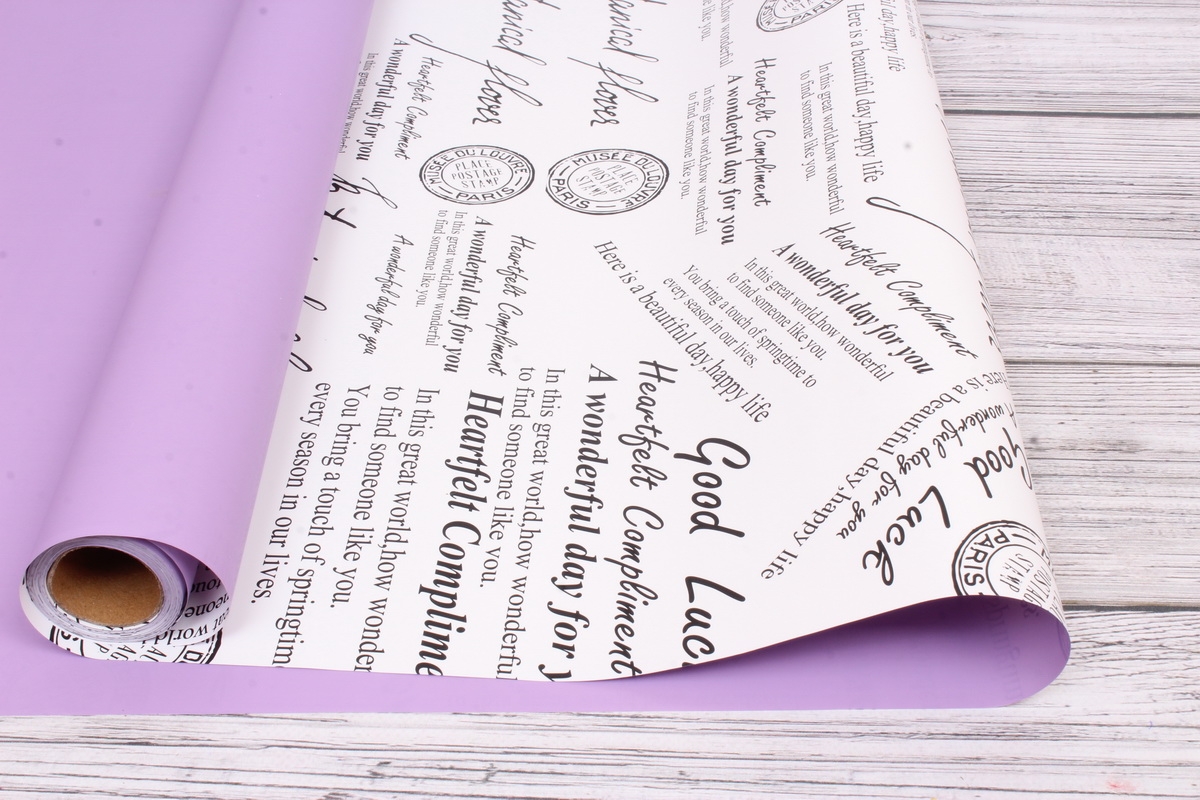 flover
flover
MUSÉE DU LOUVRE
PLACE
POSTAGE
STAMP
PARIS
MUSÉE DU LOUVRE
PLACE
POSTAGE
STAMP
PARIS
Heartfelt Compliment
A wonderful day for you
In this great world,how wonderful
Heartfelt Compliment
A wonderful day for you
In this great world,how wonderful
to find someone like you.
Here is a beautiful day,happy life
In this great world,how wonderful
to find someone like you.
day,happy life
like you.
Heartfelt Compliment
A wonderful day for you
In this great world,how wonderful
to find someone like you.
A wonderful day for you
Heartfelt Compliment
A wonderful day for you
In this great world,how wonderful
to find someone like you.
You bring a touch of springtime to
every season in our lives.
Here is a beautiful day,happy life
Good Luck
A wonderful day for you
Here is a beautiful day,happy life
Good Luc
Heartfelt Compliment
A wonderful day for y
In this great world,how wonderful
to find someone like you.
Heartfelt Complime
In this great world,how wonder
to find someone like you.
You bring a touch of springtim
every season in our lives.
PARIS
STAMP